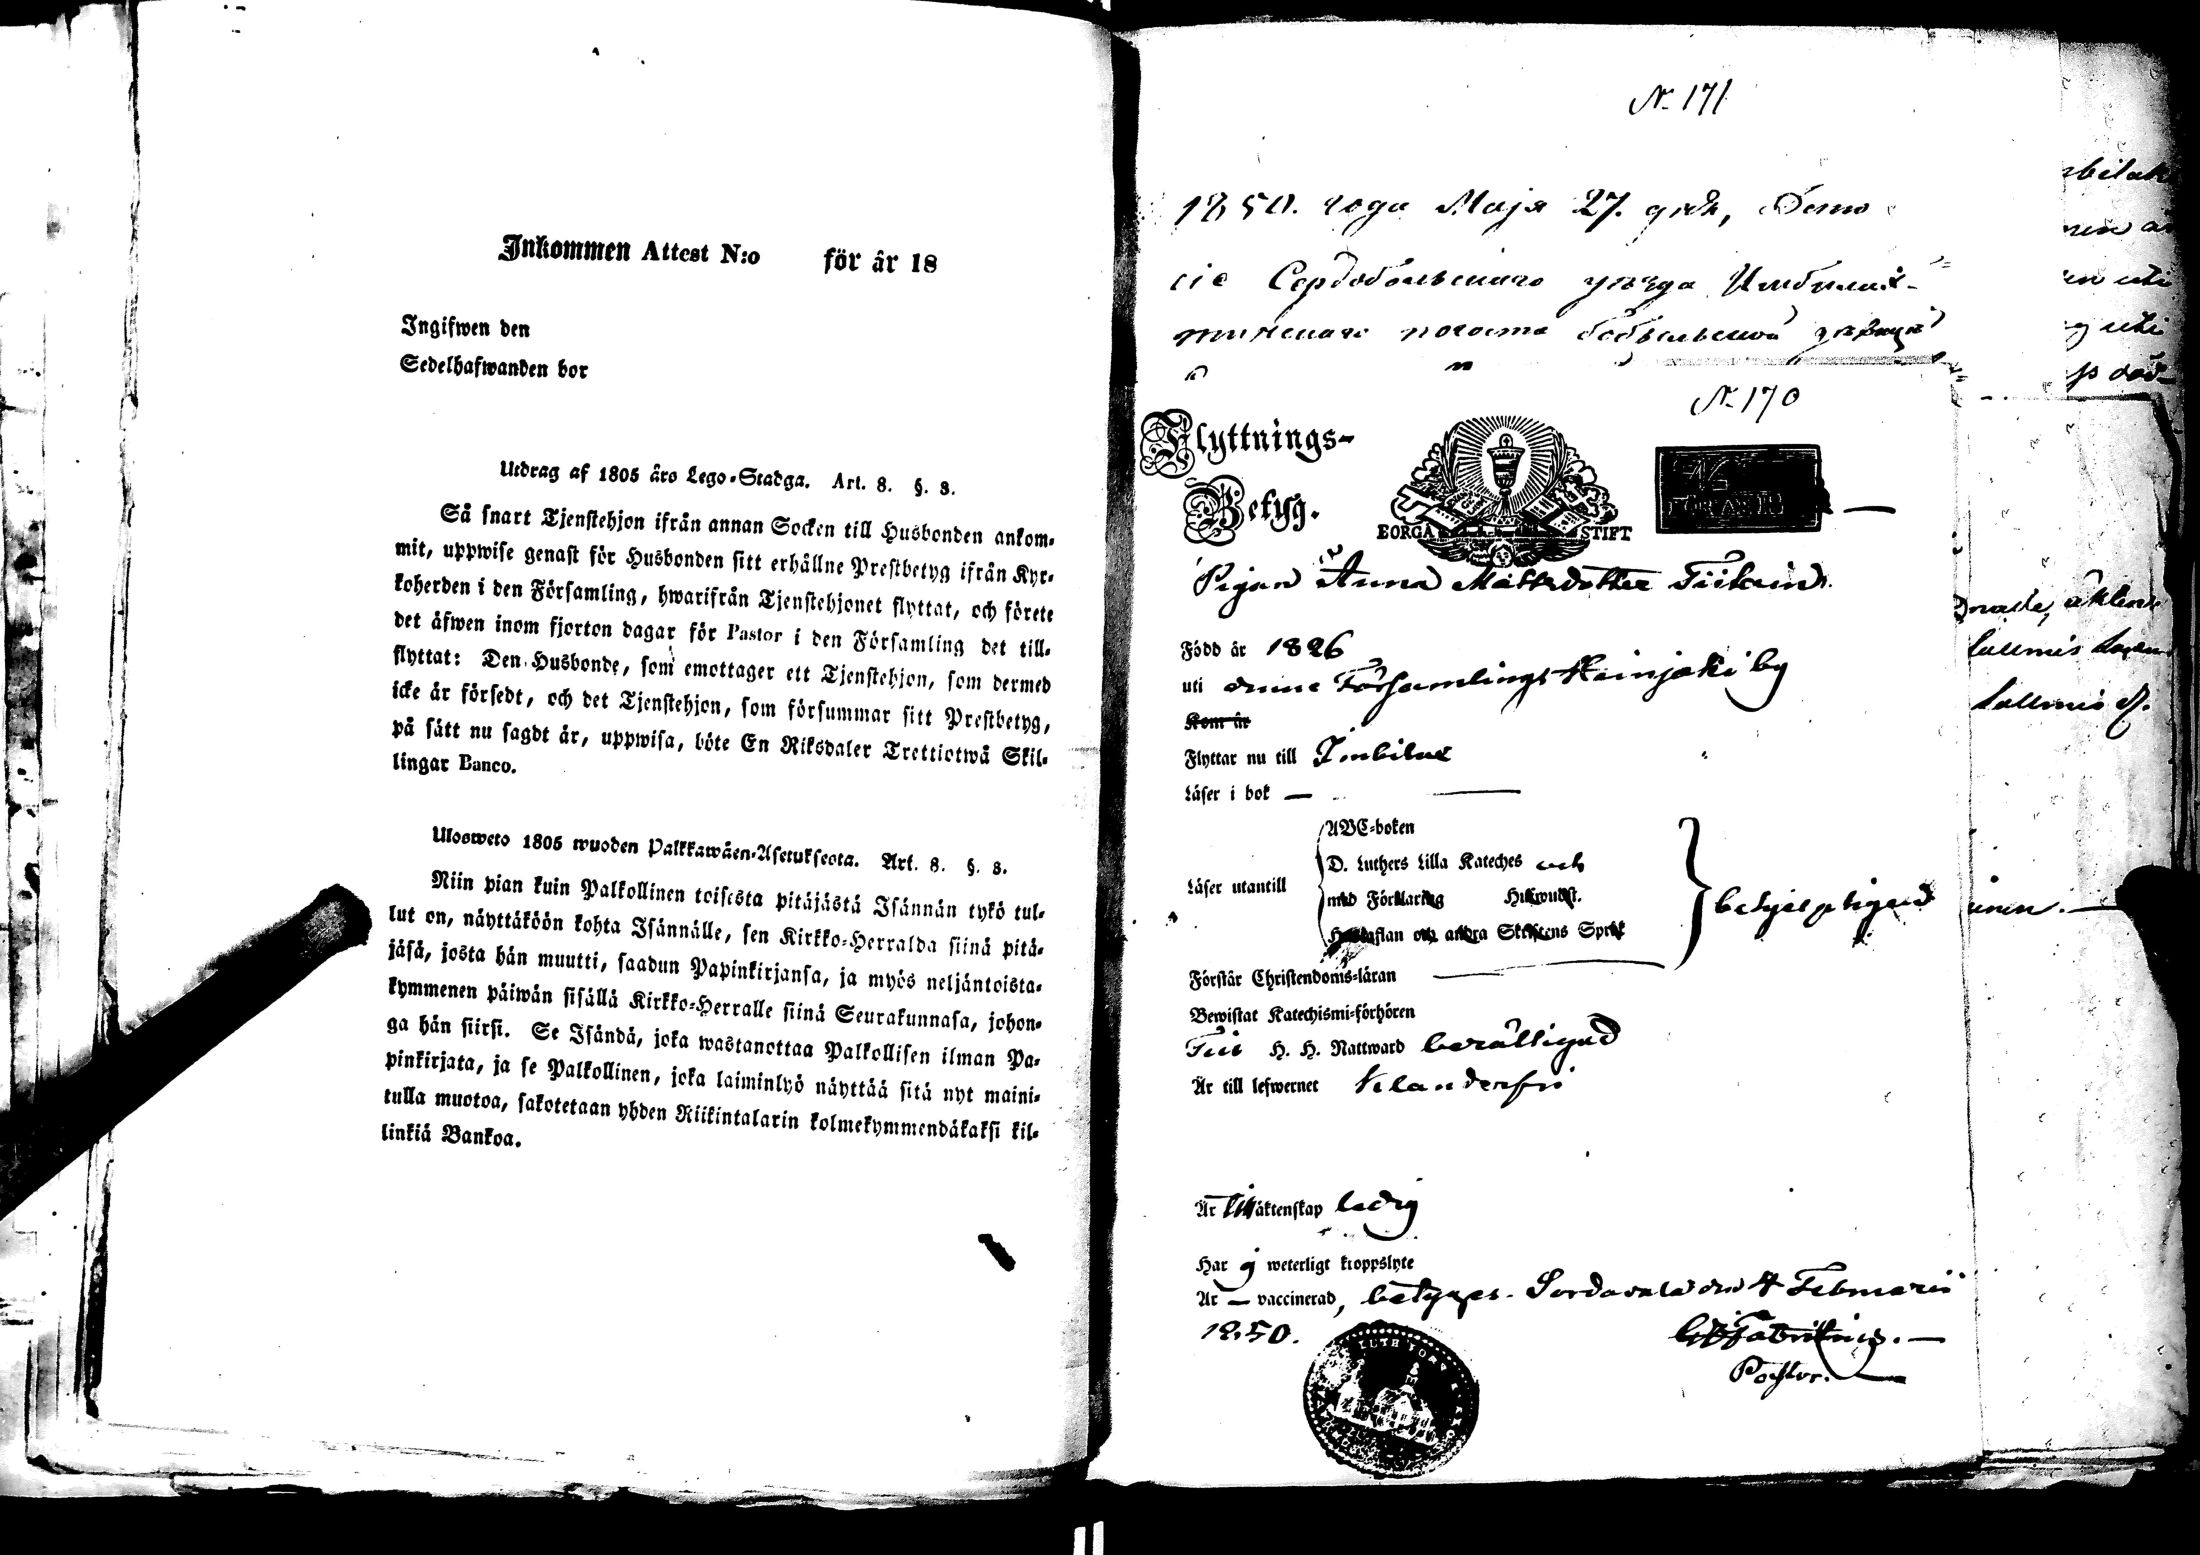 Inkommen Attest N:o för år 18
Ingifwen den
Sedelhafwanden bor
Utdrag af 1805 års Lego-Stadga. Art. 8. §. 8.
Så snart Tjenstehjon ifrån annan Socken till Husbonden ankom-
mit, uppwise genast för Husbonden sitt erhållne Prestbetyg ifrån Kyr-
koherden i den Församling, hwarifrån Tjenstehjonet flyttat, och förete
det äfwen inom fjorton dagar för Pastor i den Församling det till-
flyttat: Den Husbonde, som emottager ett Tjenstehjon, som dermed
icke är försedt, och det Tjenstehjon, som försummar sitt Prestbetyg,
på sätt nu sagdt är, uppwisa, böte En Riksdaler Trettiotwå Skil-
lingar Banco.
Ulosweto 1805 wuoden Palkkawäen-Asetuksesta. Art. 8. §. 8.
Niin pian kuin Palkollinen toisesta pitäjästä Isännän tykö tul-
lut on, näyttäköön kohta Isännälle, sen Kirkko-Herralda siinä pitä-
jäsä, josta hän muutti, saadun Papinkirjansa, ja myös neljäntoista-
kymmenen päiwän sisällä Kirkko-Herralle siinä Seurakunnasa, johon-
ga hän siirsi. Se Isändä, joka wastanottaa Palkollisen ilman Pa-
pinkirjata, ja se Palkollinen, joka laiminlyö näyttää sitä nyt maini-
tulla muotoa, sakotetaan yhden Riikintalarin kolmekymmendäkaksi kil-
linkiä Bankoa.
N. 171
1850. года Мајя 27. дня,
сіе Сердобольскаго уѣзда
погоста
N. 170
Flyttnings-
Betyg.
BORGÅ STIFT
N:o
FÖR ÅR 18
Pigan Anna Mattsdotter Tiikain.
Född år 1826
uti denne Församlings Heinjoki by
Kom år
Flyttar nu till Imbilax
Läser i bok —
Läser utantill
ABC-boken
D. Luthers Lilla Kateches och
med Förklaring Hufwudst.
Hustaflan och andra Skriftens Språk
betjelpligand
Förstår Christendoms-läran
Bewistat Katechismi-förhören
Till H. H. Nattward berättigad
Är till lefwernet klanderfri
Är till äktenskap ledig
Har ej weterligt kroppslyte
Är — vaccinerad, betygas. Sordavala den 4 Februarii
1850.
Pastor.